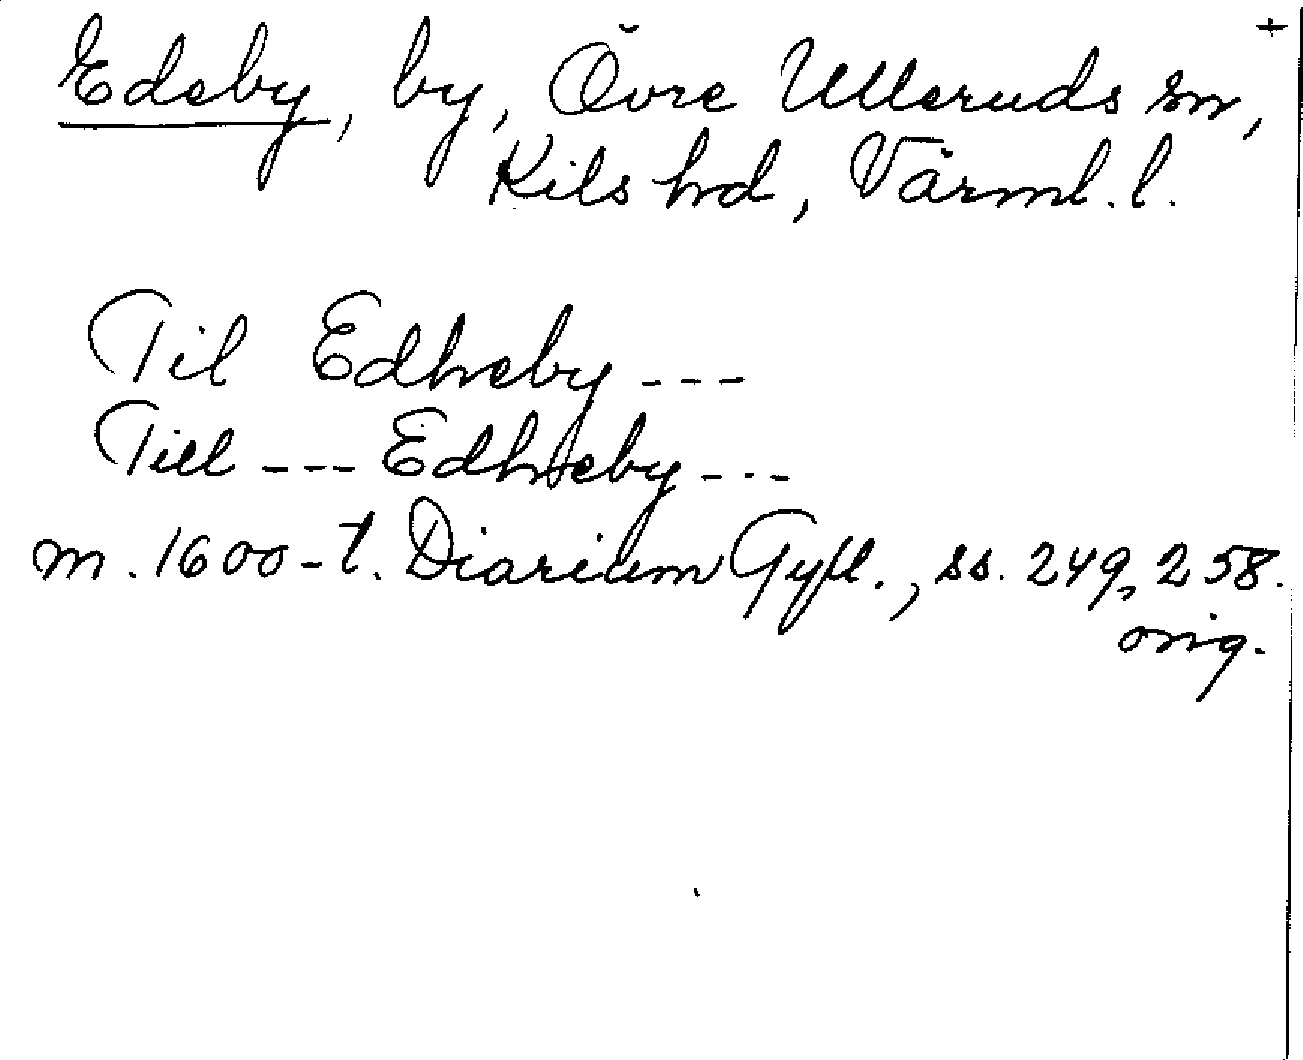 +
Edeby, by, Övre Ulleruds sn,
Kils hd, Värml. l.
Til Edheby ---
Till --- Edheby ---
m. 1600-t. Diarium Gyll., ss. 249, 258.
orig.